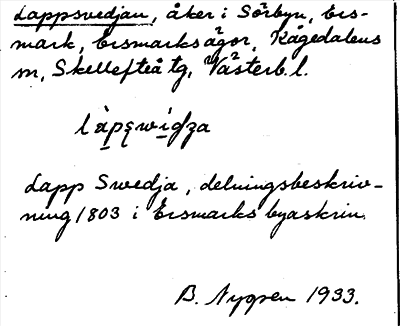 Lappsvedjan, åker i Sörbyn, Ers-
mark, Ersmarksågor, Kågedalens
m, Skellefteå tg, Västerb. l.
làpʂwìdʒa
Lapp Swedja, delningsbeskriv-
ning 1803 i Ersmarks byaskrin.
B. Nygren 1933.